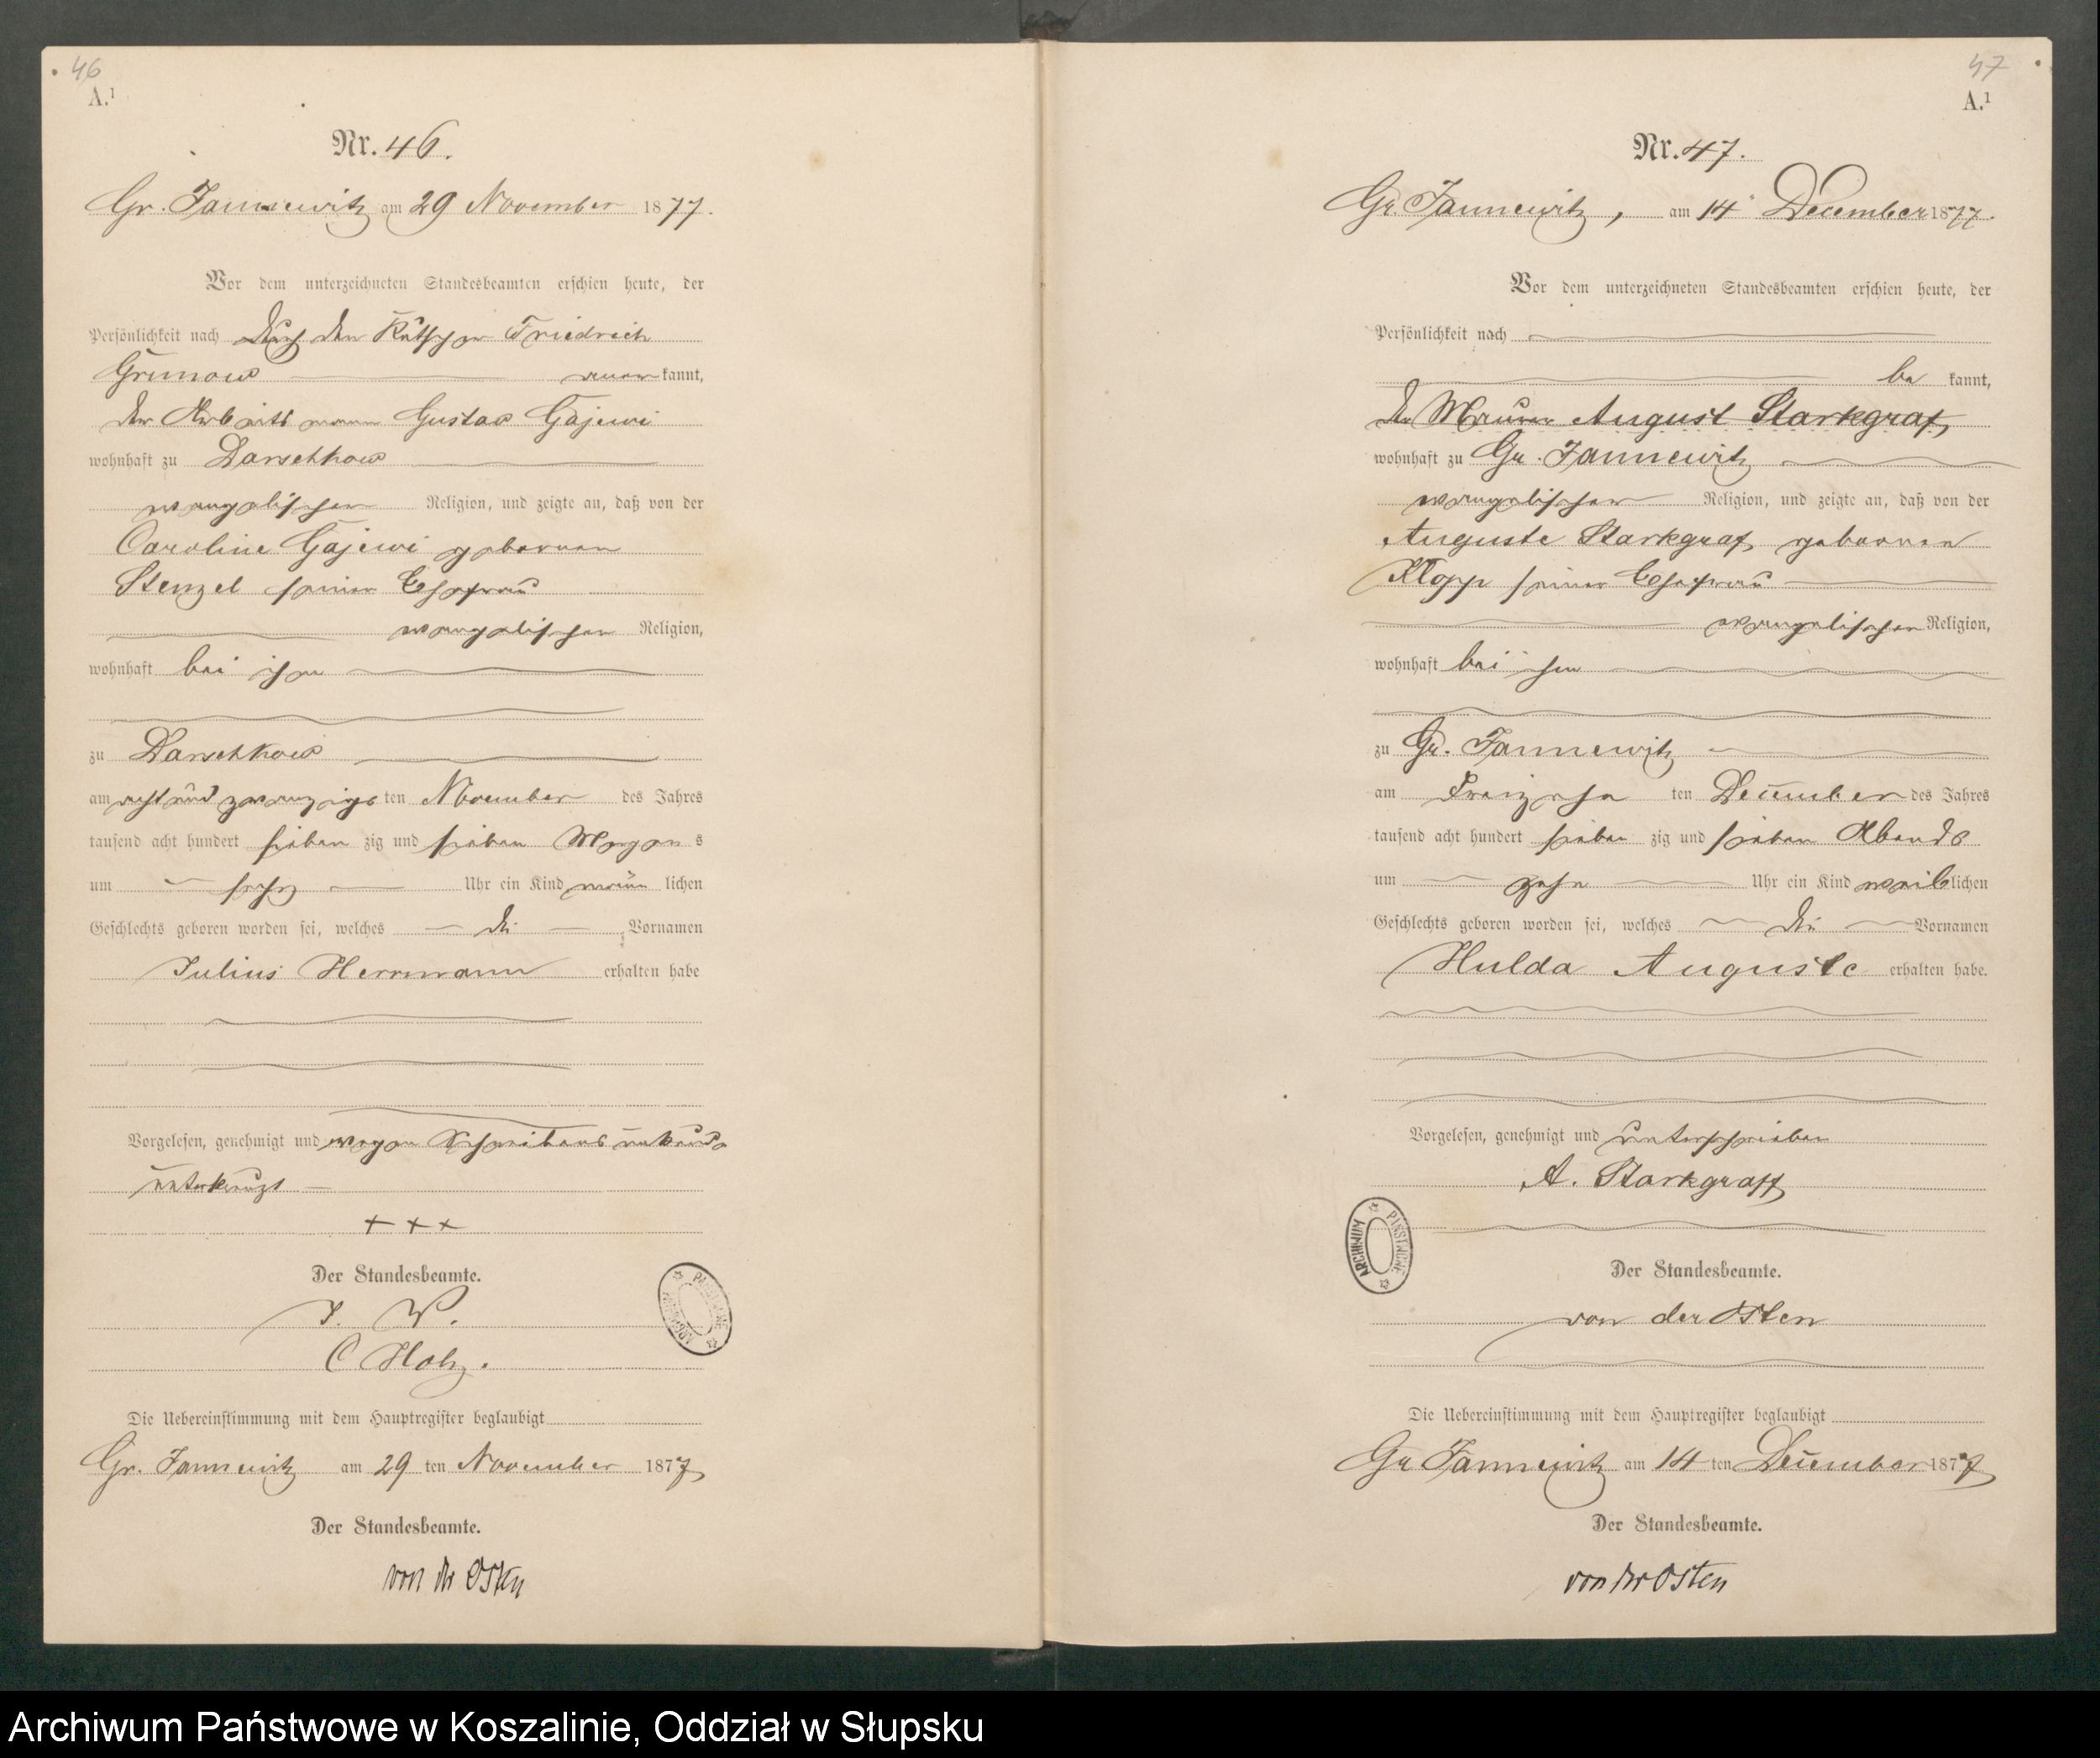 46
A.1
Nr. 46.
Gr. Jannewitz am 29 November 1877.
Vor dem unterzeichneten Standesbeamten erschien heute, der
Persönlichkeit nach durch den Käthner Friedrich
Grunow kannt,
der Arbeitsmann Gustav Gajewi
wohnhaft zu Darschkow
evangelischer Religion, und zeigte an, daß von der
Caroline Gajewi geborenen
Stenzel seiner Ehefrau
evangelischer Religion,
wohnhaft bei ihm
zu Darschkow
am acht und zwanzigsten November des Jahres
tausend acht hundert sieben zig und sieben Morgens
um sechs Uhr ein Kind männlichen
Geschlechts geboren worden sei, welches die Vornamen
Julius Herrmann erhalten habe
Vorgelesen, genehmigt und wegen Schreibens unkunde
unterkreuzt
+ + +
Der Standesbeamte.
J. V.
C Holz.
Die Uebereinstimmung mit dem Hauptregister beglaubigt
Gr. Jannewitz am 29 ten November 1877
Der Standesbeamte.
von der Osten
ARCHIWUM PAŃSTWOWE
47
A.1
Nr. 47.
Gr. Jannewitz, am 14 December 1877.
Vor dem unterzeichneten Standesbeamten erschien heute, der
Persönlichkeit nach
be kannt,
der Maurer August Starkgraf
wohnhaft zu Gr. Jannewitz
evangelischer Religion, und zeigte an, daß von der
Auguste Starkgraf geborenen
Klopp seiner Ehefrau
evangelischer Religion,
wohnhaft bei ihm
zu Gr. Jannewitz
am Dreizehn ten December des Jahres
tausend acht hundert sieben zig und sieben Abends
um zehn Uhr ein Kind weiblichen
Geschlechts geboren worden sei, welches die Vornamen
Hulda Auguste erhalten habe.
Vorgelesen, genehmigt und unterschrieben
A. Starkgraff
ARCHIWUM PAŃSTWOWE
Der Standesbeamte.
von der Osten
Die Uebereinstimmung mit dem Hauptregister beglaubigt
Gr Jannewitz am 14 ten December 1877
Der Standesbeamte.
von der Osten
Archiwum Państwowe w Koszalinie, Oddział w Słupsku